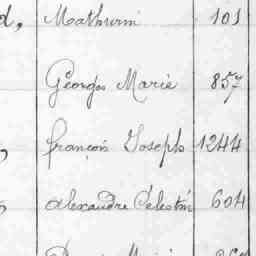 d, Mathurin 101
Georges Marie 857
, françois Joseph 1244
, alexandre Célestin 604